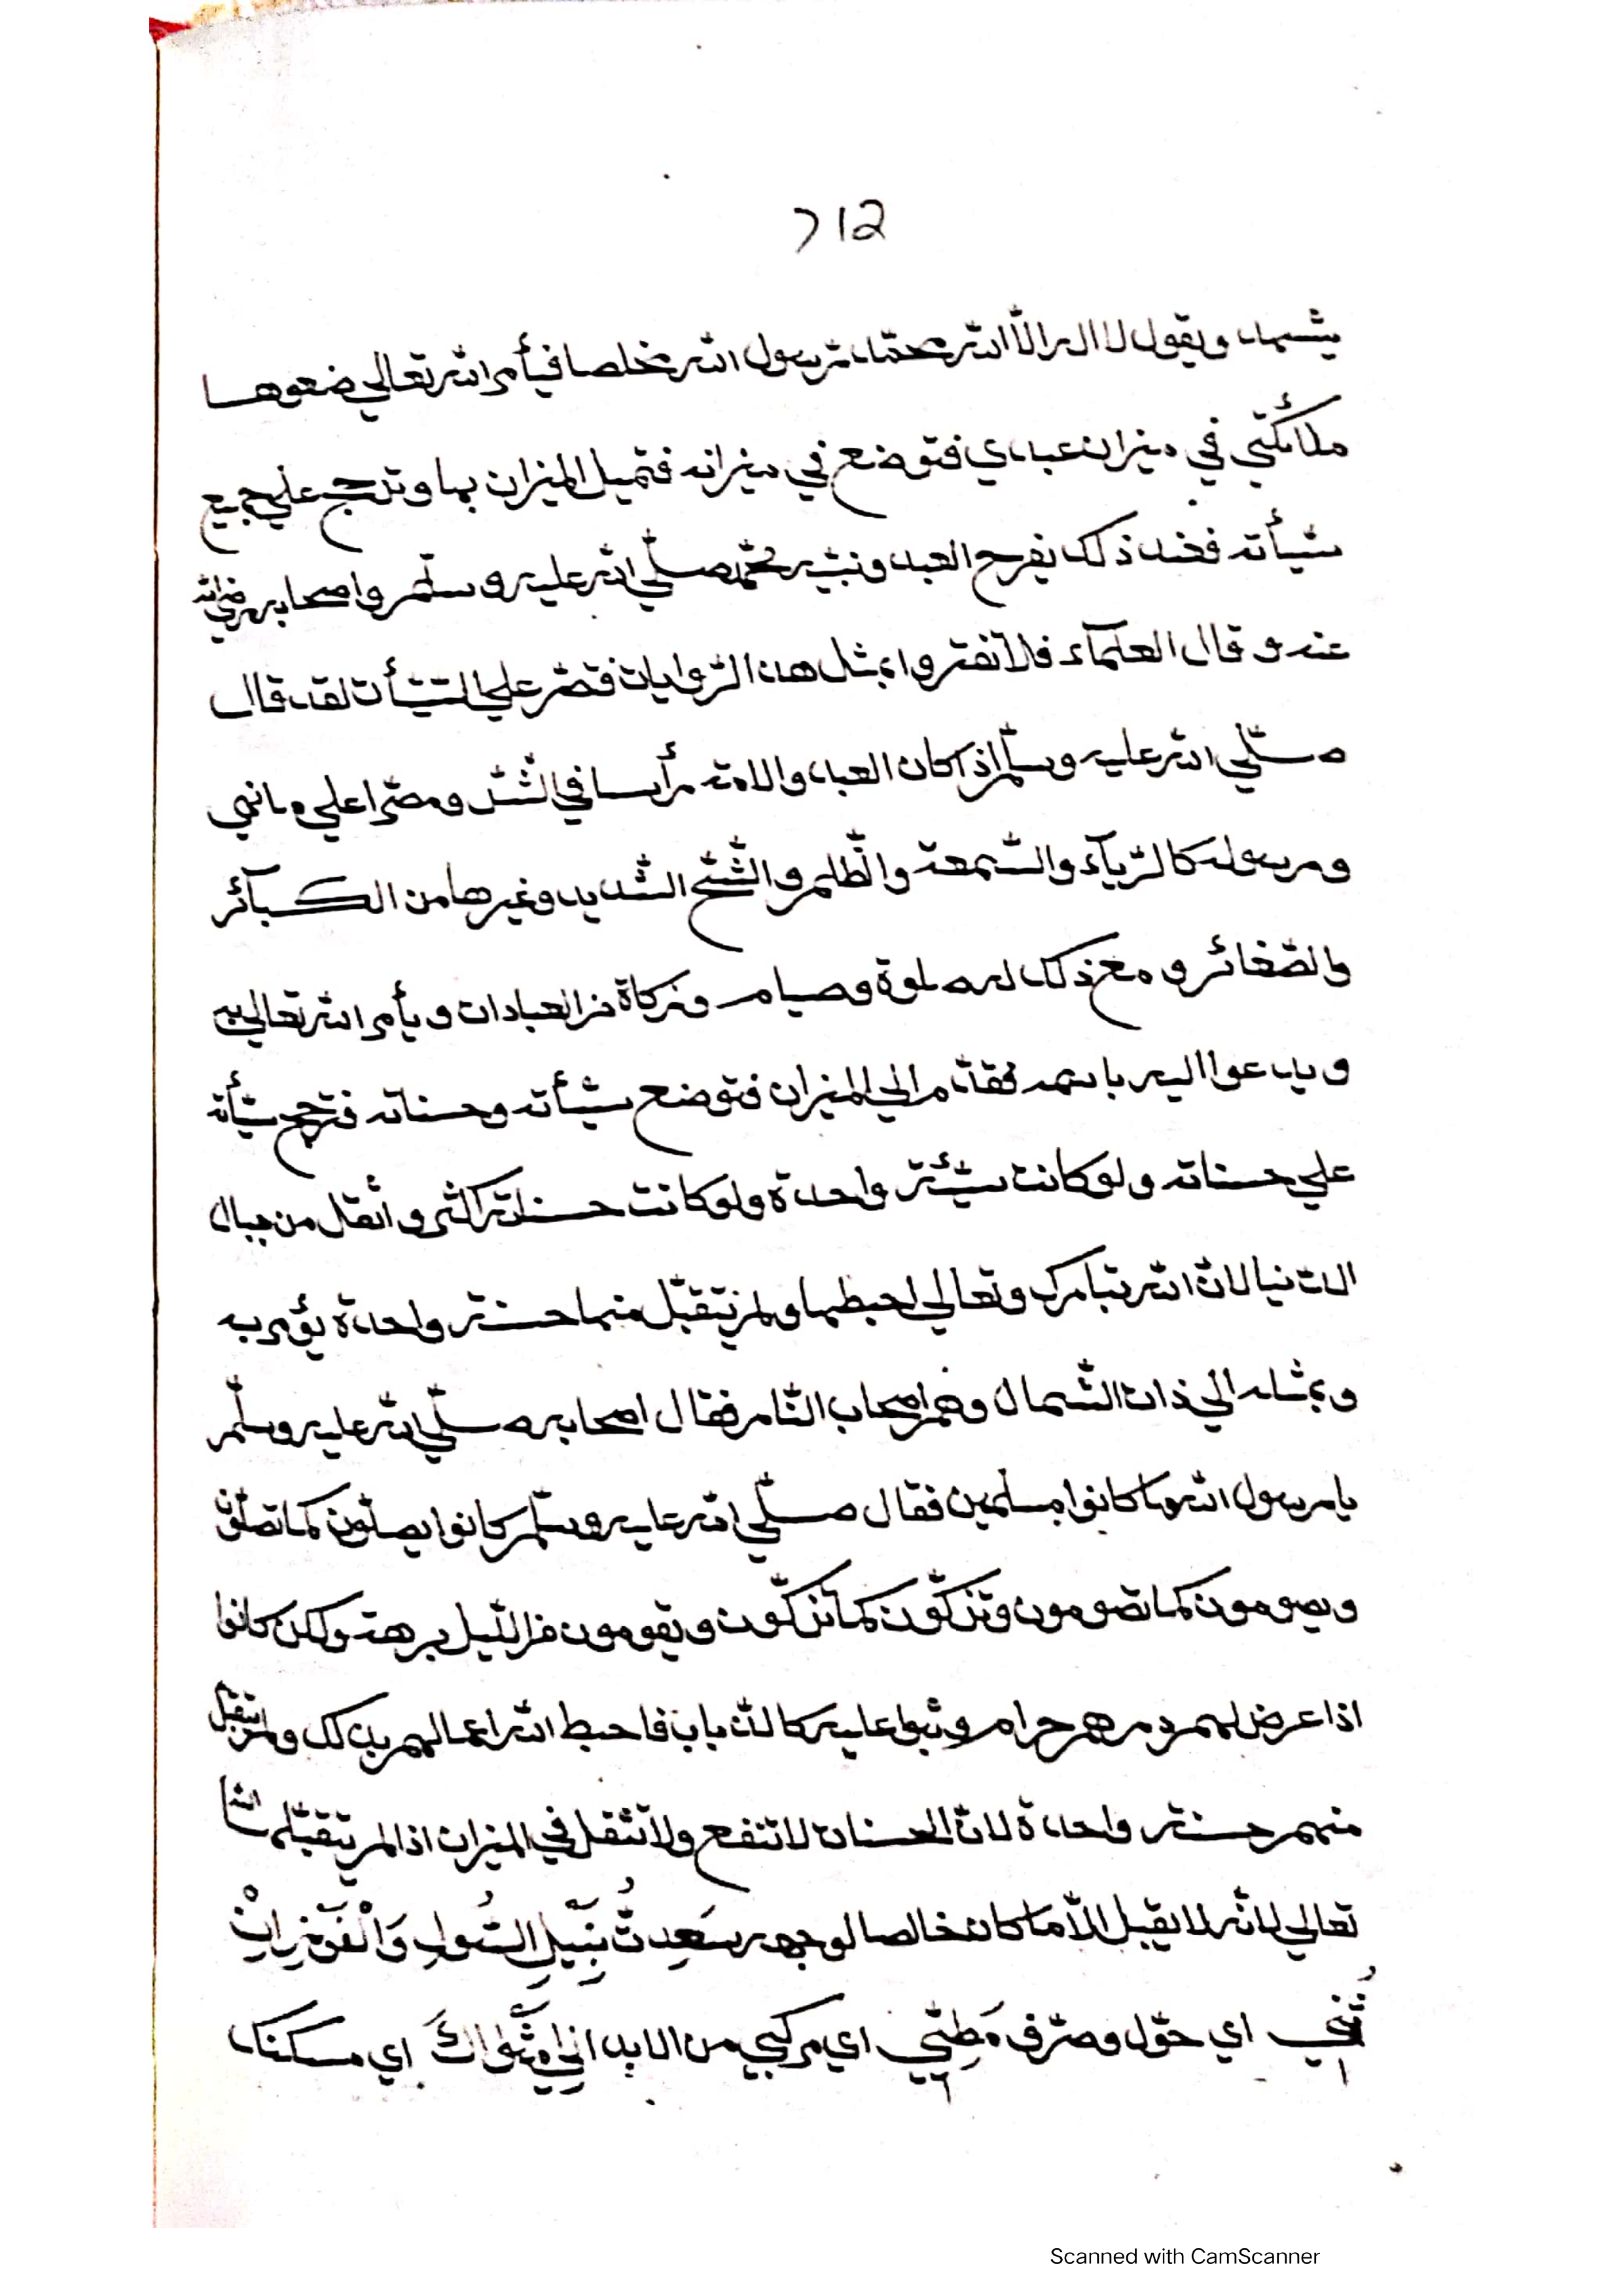 712
يشهد ويقول لا اله الاّ الله محمّد رسول الله مخلصا فيأمر الله تعالي ضعوها
ملائكتي في ميزان عبدي فتوضع في ميزانه فتميل الميزان بها وترجح علي جميع
سيّأته فعند ذلك يفرح العبد ونبيّه محمّد صلّي الله عليه وسلّم واصحابه رضي الله
عنه وقال العلمآء فلا تغتروا بمثل هذه الرّوايات فتصرّ علي السّيّأت لقد قال
صلّي الله عليه وسلّم اذا كان العبد والامة رأسا في الشّرّ ومصرّا علي ما نهي
ورسوله كالرّيآء والسّمعة والظّلم والشّحّ الشّديد وغيرها من الكبآئر
والصّغائر ومع ذلك له صلوة وصيام وزكاة من العبادات ويأمر الله تعالي به
ويدعوا اليه باسمه فقدّم الي الميزان فتوضع سيّأته وحسناته فترجح سيّأته
علي حسناته ولو كانت سيّئة واحدة ولو كانت حسناته اكثر وأثقل من جبال
الدّنيا لانّ الله تبارك وتعالي احبطها ولم يتقبّل منها حسنة واحدة يؤمر به
وبمثله الي ذات الشّمال وهم اصحاب النّار فقال اصحابه صلّي الله عليه وسلّم
يا رسول الله وما كانوا مسلمين فقال صلّي الله عليه وسلّم كانوا يصلّون كما تصلّون
ويصومون كما تصومون وتزكّون كما تزكّون ويقومون من اللّيل برهة ولكن كانوا
اذا عرض لهم درهم حرام وثبوا عليه كالذّباب فاحبط الله اعمالهم بذلك ولم يتقبّل
منهم حسنة واحدة لانّ الحسنات لا تنفع ولا تثقل في الميزان اذا لم يتقبّلها الله
تعالي لانّه لا يقبل الاّ ما كان خالصا لوجهه سَعِدتُ بِنَيْلِ السُّولِ وَالْفَوْزِ انْ
ثُنِي اي حوّل وصرّف مَطِيّي اي مركبي من الابل الي مَثْوَاكَ اي مسكنك
Scanned with CamScanner